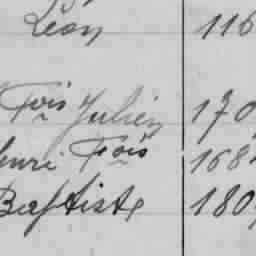 Léon 116
Fois Julien 170
enri Fois 168
Baptiste 180